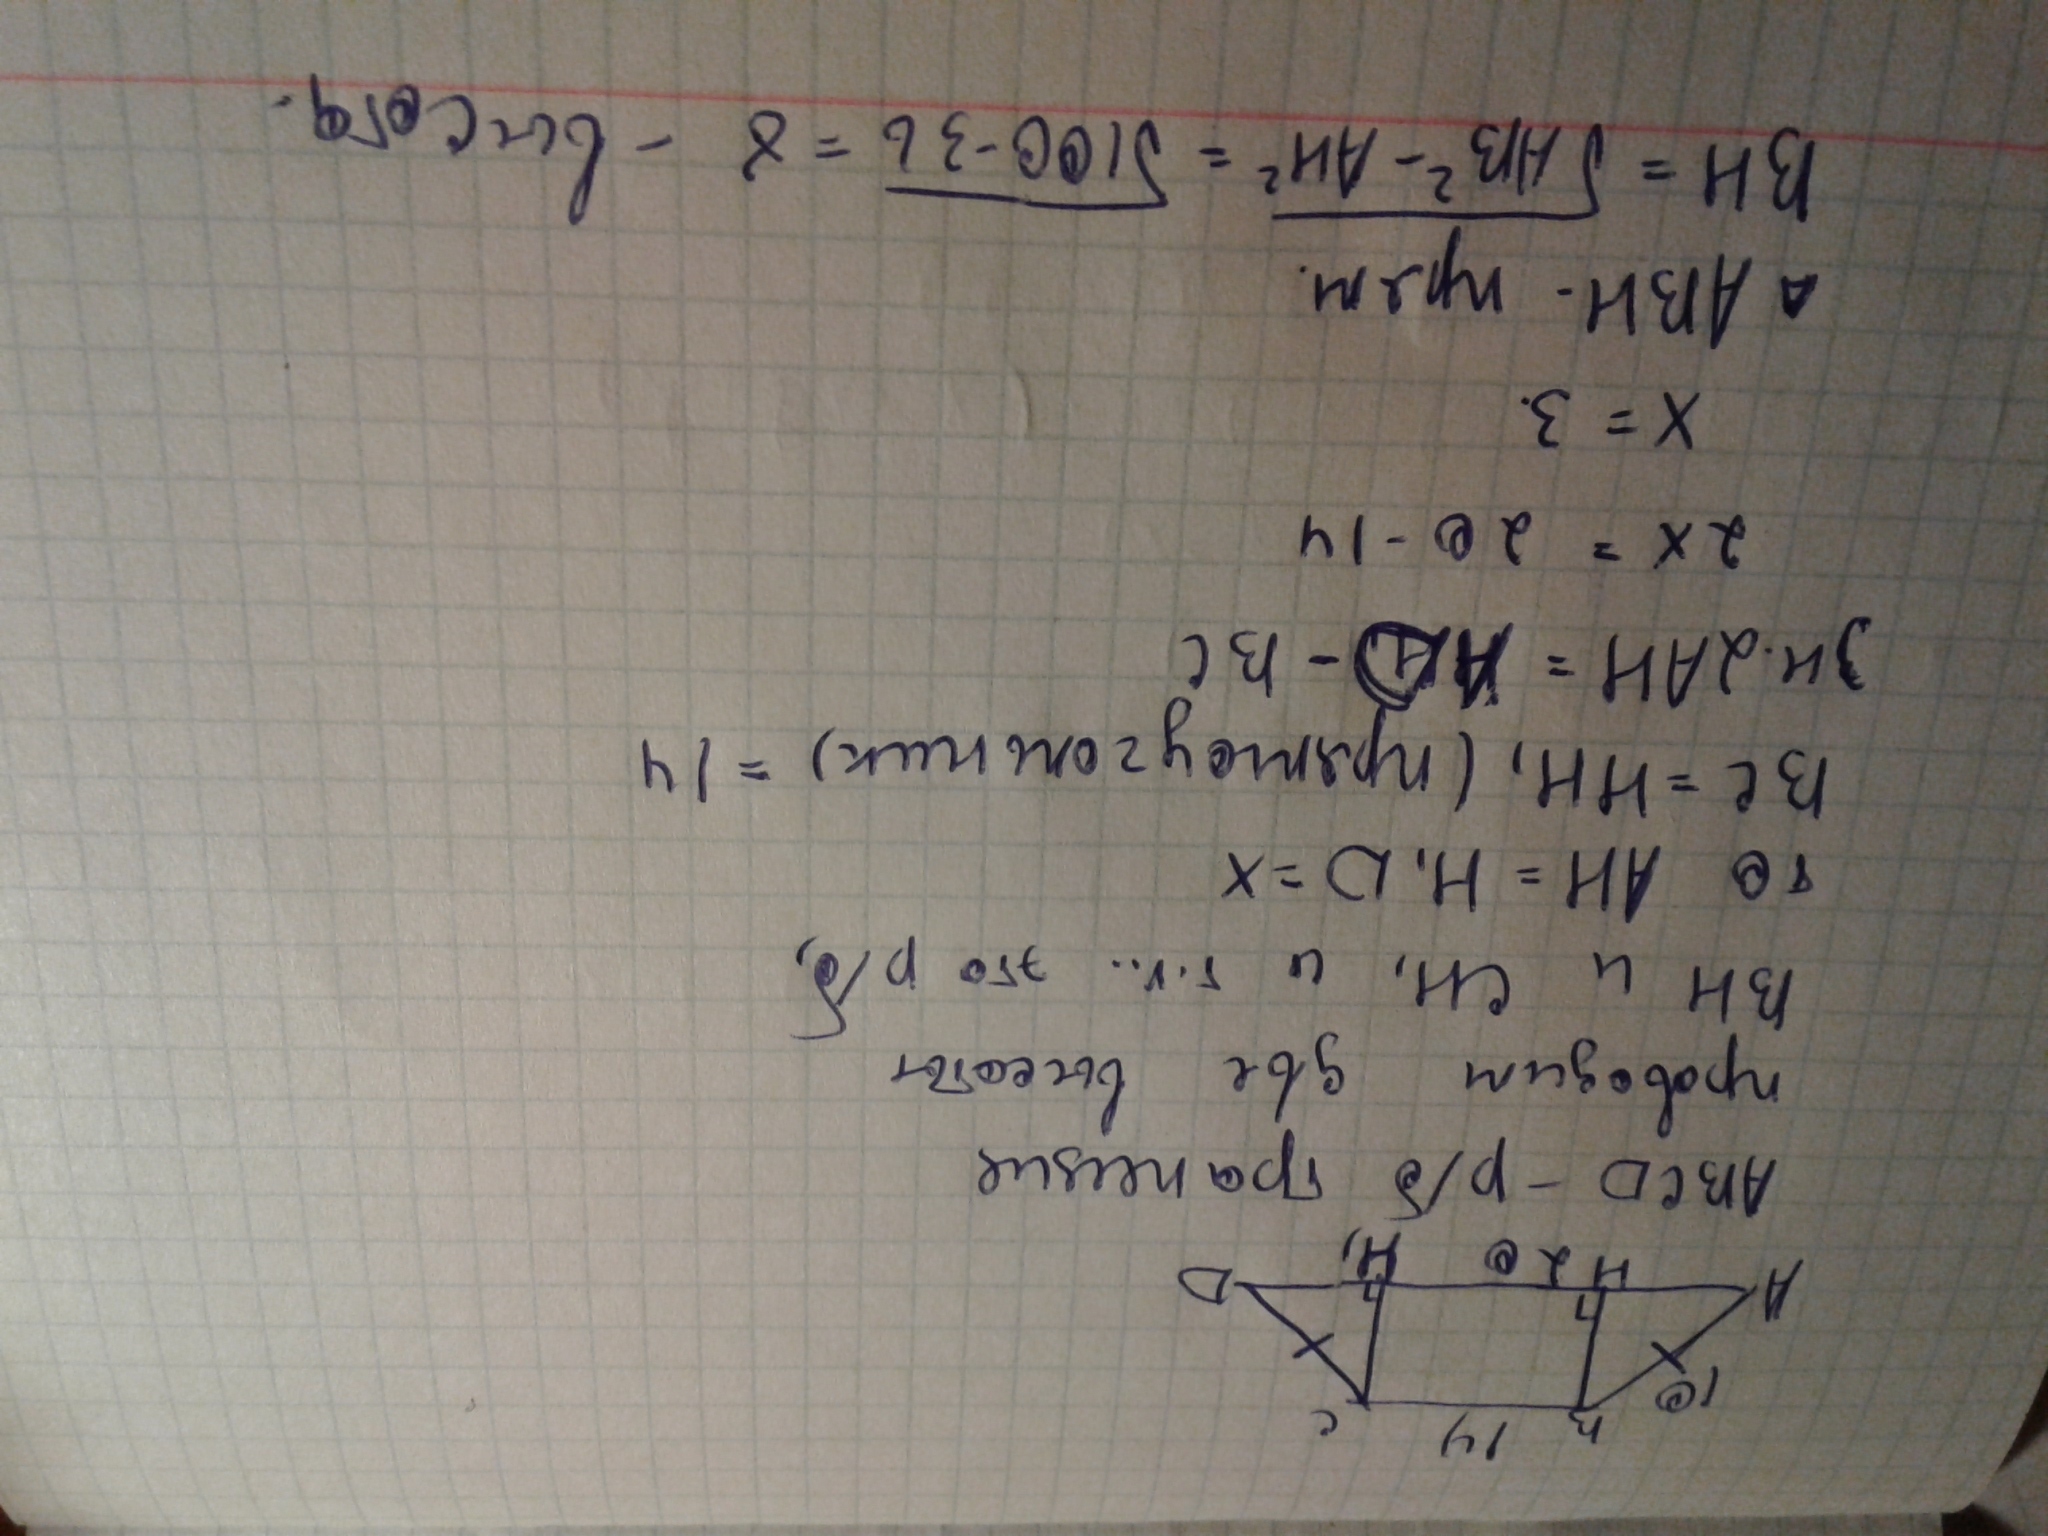 B 14 C
10
A H 20 H₁ D
ABCD - р/б трапеция
проводим две высоты
BH и CH₁ и т.к. это р/б,
то AH = H₁D = x
BC = HH₁ (прямоугольник) = 14
Зн. 2AH = AD - BC
2x = 20 - 14
x = 3.
△ ABH - прям.
BH = √AB² - AH² = √100-36 = 8 - высота.